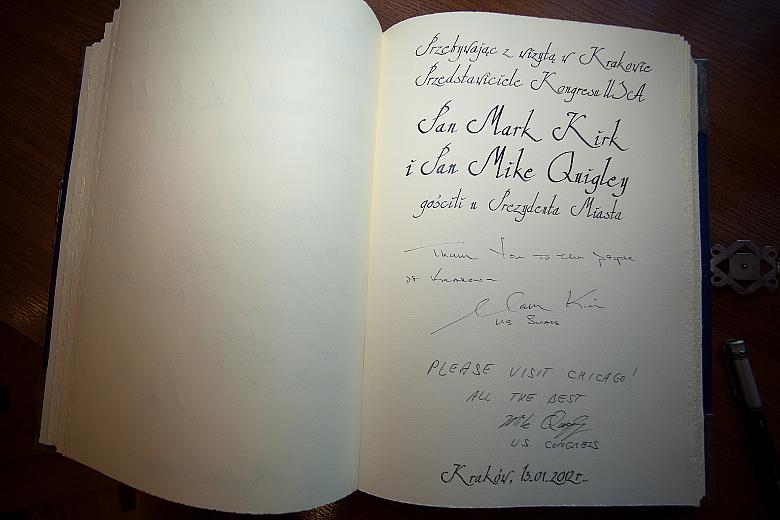 Przebywając z wizytą w Krakowie
Przedstawiciele Kongresu USA
Pan Mark Kirk
i Pan Mike Quigley
gościli u Prezydenta Miasta
Thank You to the people
of Krakow –
Mark Kirk
U.S. Senate
PLEASE VISIT CHICAGO!
ALL THE BEST
Mike Quigley
US CONGRESS
Kraków, 13.01.2012 r.